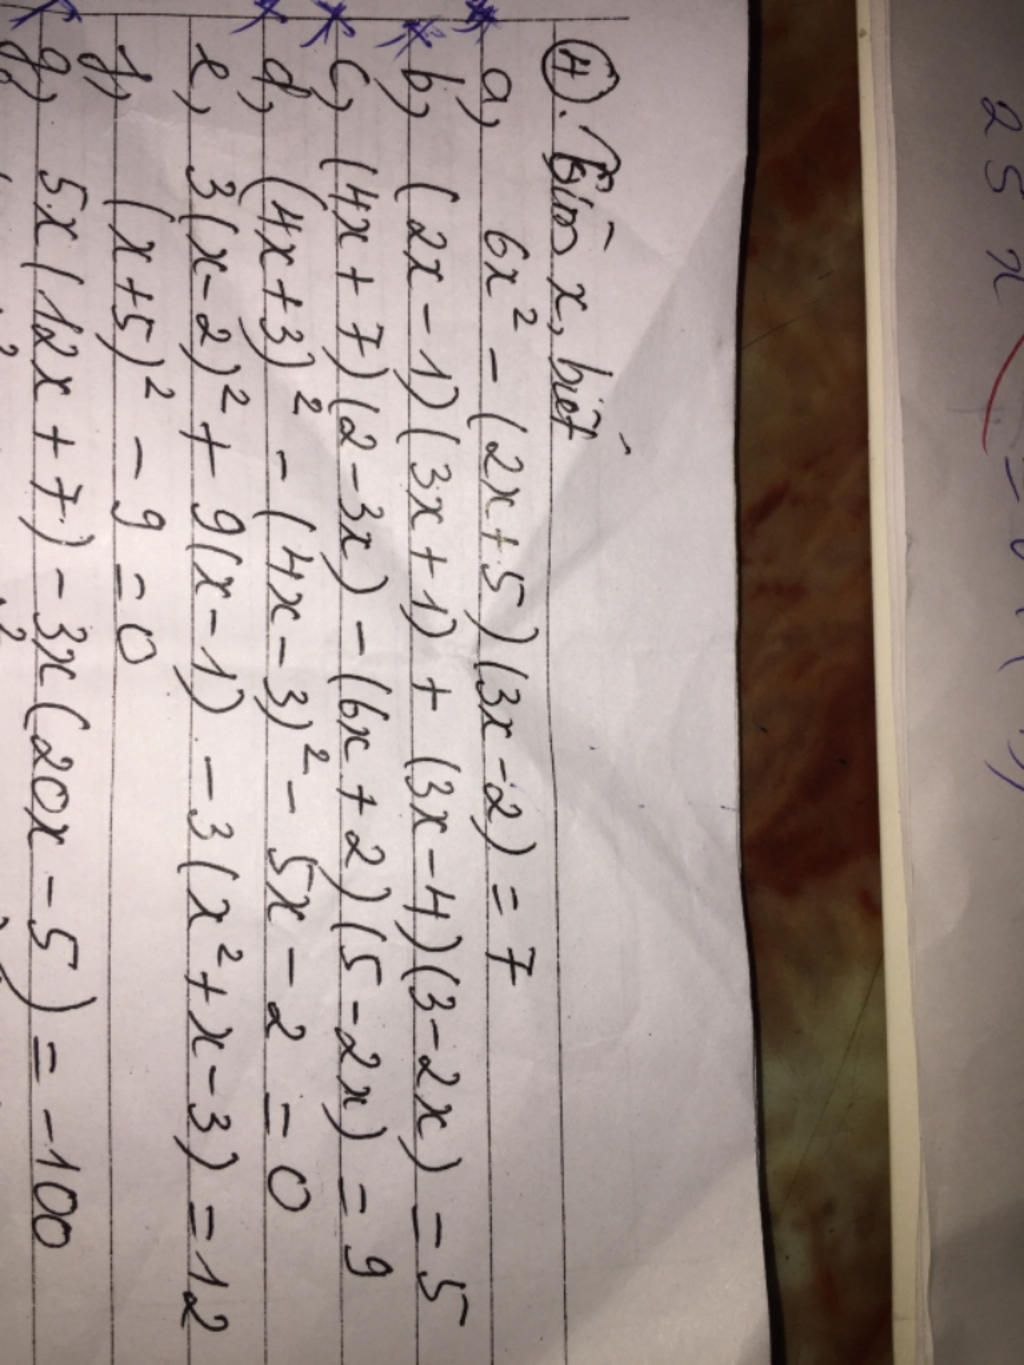 ④. Tìm x, biết
a, 6x² - (2x+5)(3x-2) = 7
b, (2x-1)(3x+1) + (3x-4)(3-2x) = 5
c, (4x+7)(2-3x) - (6x+2)(5-2x) = 9
d, (4x+3)² - (4x-3)² - 5x - 2 = 0
e, 3(x-2)² + 9(x-1) - 3(x²+x-3) = 12
f, (x+5)² - 9 = 0
g, 5x(12x+7) - 3x(20x-5) = -100
25x